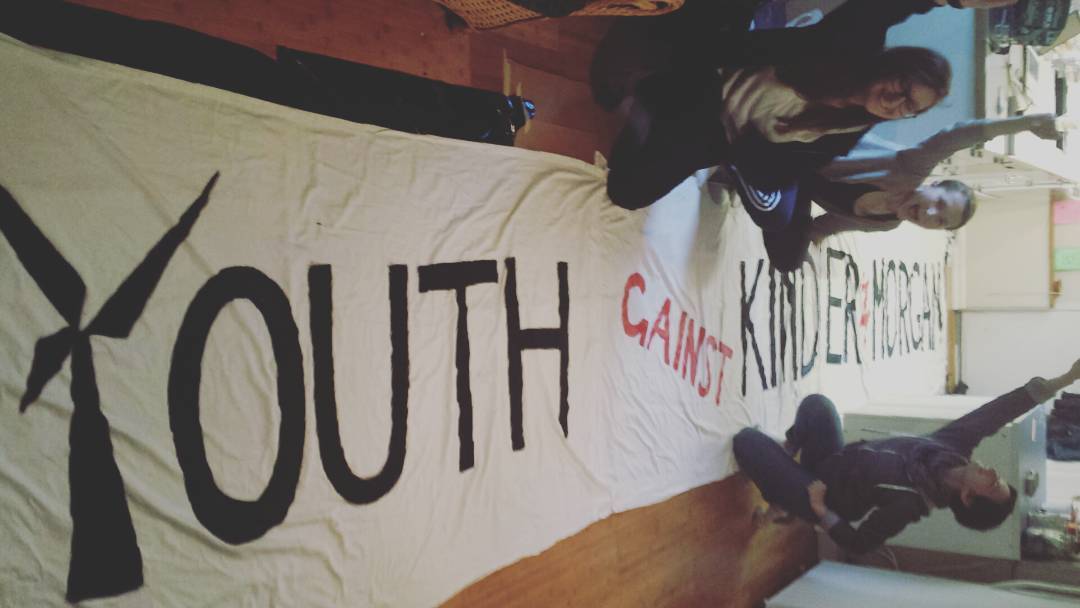 YOUTH GAINST KINDER MORGAN